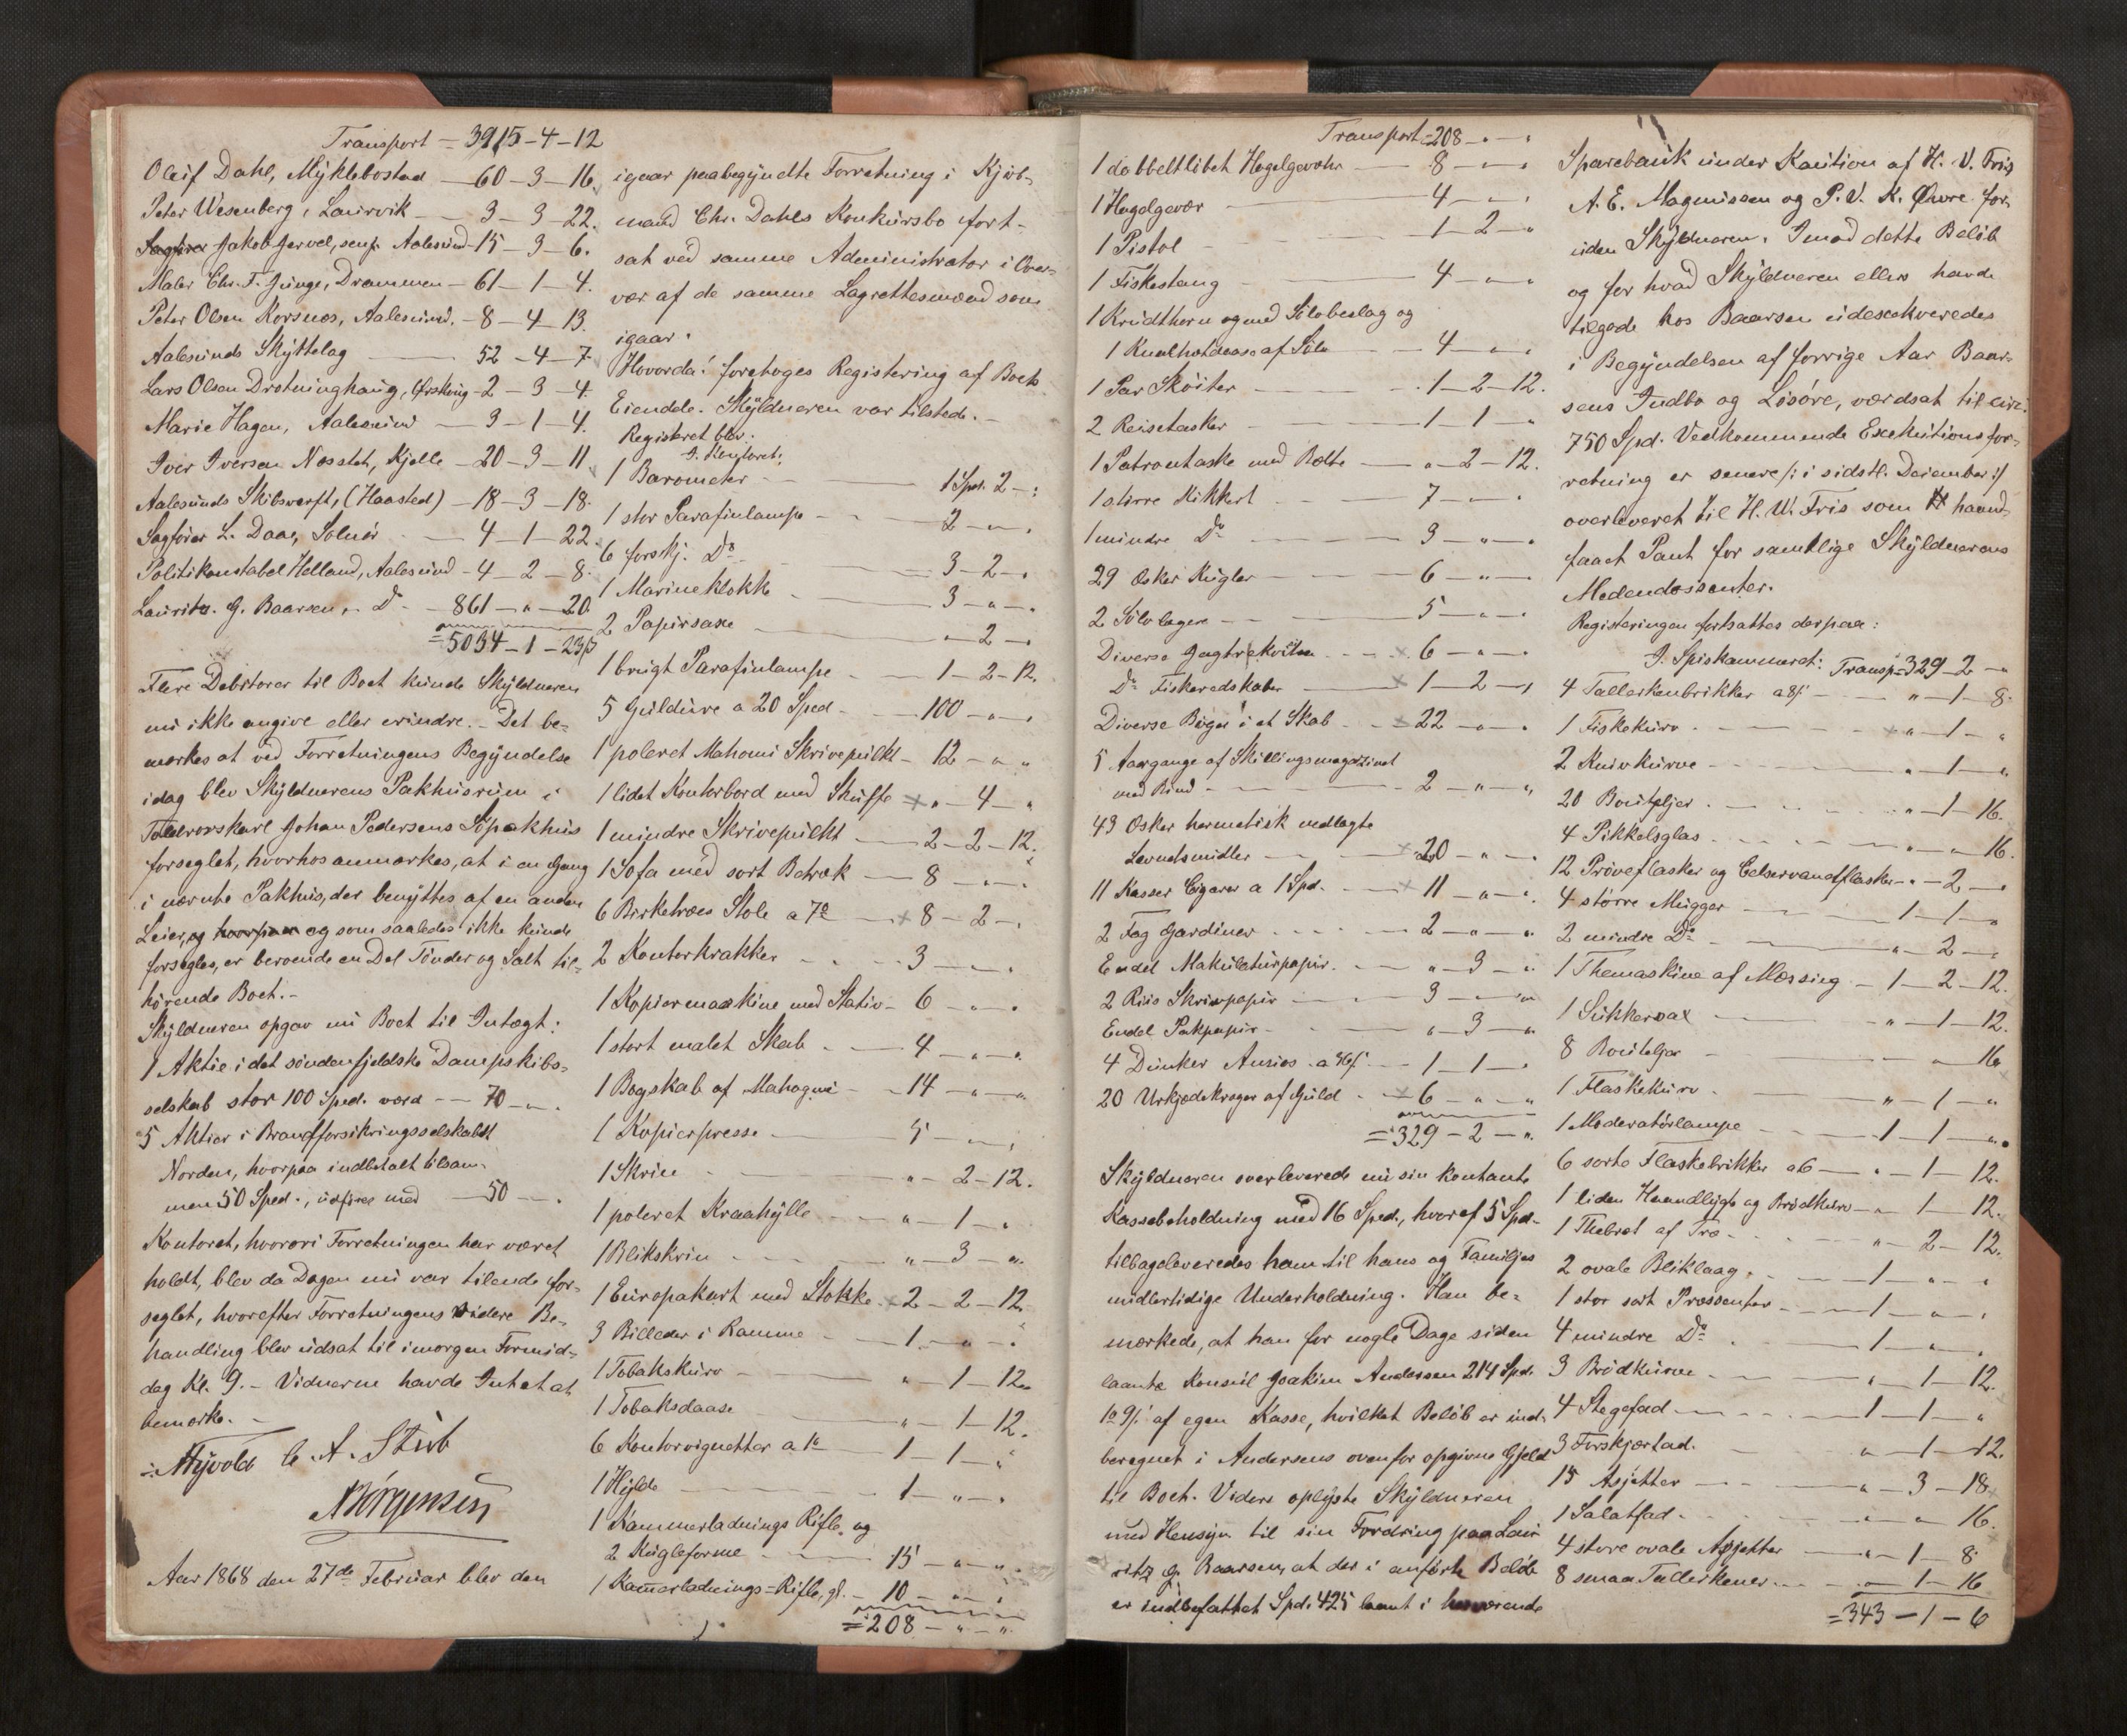 Transport = 3915-4-12
Oluf Dahl, Myklebostad - 60-3-16.
Peter Wesenberg, Laurvik - 3-3-22.
Jakob Jervel, senj. Aalesund - 15-3-6.
Maler Chr. F. Junge, Drammen - 61-1-4.
Peter Olsen Korsnæs, Aalesund, - 8-4-13.
Aalesunds Skyttelag - 52-4-7
Lars Olsen Drotninghaug, Ørskoug - 2-3-4.
Marie Hagen, Aalesund - 3-1-4.
Iver Iversen Næsstet, Kjelle - 20-3-11
Aalesunds Skibsværft, (Haasted) - 18-3-18.
Sagfører L. Daae, Solnør - 4-1-22.
Politikonstabel Helland, Aalesund - 4-2-8.
Lauritz G. Baarsen, Do - 861-"-20.
= 5034-1-23 β
Flere Debitorer til Boet kunde Skyldneren
nu ikke angive eller erindre. - Det be-
mærkes at ved Forretningens Begyndelse
idag blev Skyldnerens Pakhusrum i
Toldrorskarl Johan Pedersens Søpakhus
forseglet, hvorhos anmærkes, at i en Gang
i nævnte Pakhus, der benyttes af en anden
Leier, og som saaledes ikke kunde
forsegles, er beroende en Del Tønder og Salt til-
hørende Boet. -
Skyldneren opgav nu Boet til Indtægt:
1 Aktie i det søndenfjeldske Dampskibs-
selskab stor 100 Spd. værd - 70 - " .
5 Aktier i Brandforsikringsselskabet
Norden, hvorpaa indbetalt tilsam-
men 50 Sped., udføres med - 50 - " .
Kontoret, hvorori Forretningen har været
holdt, blev da Dagen nu var tilende for-
seglet, hvorefter Forretningens videre Be-
handling blev udsat til imorgen Formid-
dag Kl. 9. - Vidnerne havde Intet at
bemærke. -
Myvold C. A. Stub
N Jörgensen
Aar 1868 den 27de Februar blev den
igaar paabegyndte Forretning i Kjøb-
mand Chr. Dahls Konkursbo fort-
sat ved samme Administrator i Over-
vær af de samme Lagrettesmænd som
igaar.
Hvorda! foretoges Registering af Boets
Eiendele. Skyldneren var tilstede. -
Registeret blev:
I. Kontoret:
1 Barometer - 1 Spd. 2 - :
1 stor Parafinlampe - 2 - " .
6 forskj. Do - 3 - 2 - .
1 Marineklokke - 3 - " - .
2 Papirsaxe - " - 2 - .
1 brugt Parafinlampe - 1 - 2 - 12.
5 Guldure a 20 Sped - 100 - " .
1 poleret Mahoni Skrivepullt - 12 - " "
1 lidet Kontorbord med Skuffe × " - 4 - "
1 mindre Skrivepullt - 2 - 2 - 12.
1 Sofa med sort Betræk - 8 - " .
6 Birketræes Stole a 7o × 8 - 2 - .
2 Kontorkrakker - 3 - " .
1 Kopiermaskine med Stativ - 6 - " .
1 stort malet Skab - 4 - " .
1 Bogskab af Mahogni - 14 - " - "
1 Kopierpresse - 5 - " ,
1 Skrin - " - 2 - 12.
1 poleret Kraahylle - " - 1 - .
1 Blikskrin - " - 3 - "
1 Europakart med Stokke × 2 - 2 - 12.
3 Billeder i Ramme - 1 - " .
1 Tobakskurv - " - 1 - 12.
1 Tobaksdaase - " - 1 - 12.
6 Kontorvignetter a 1o - 1 - 1 - "
1 Hylde - 1 - " .
1 Kammerladnings Rifle, og
2 Kugleforme - 15 - " "
1 Kamerladnings=Rifle, gl. - 10 - " .
= 208 - " - "
Transport = 208 - " - "
1 dobbeltløbet Hagelgevæhr - 8 - " .
1 Hagelgevær - 4 - " .
1 Pistol - 1 - 2 - "
1 Fiskestang - 4 - " .
1 Krudthorn og med Sølvbeslag og
1 Knalhætdaase af Sølv - 4 - " .
1 Par Skøiter - 1 - 2 - 12.
2 Reisetasker - 1 - 1 - "
1 Patrontaske med Belte - " 2 - 12.
1 større Kikkert - 7 - " .
1 mindre Do - 3 - " .
29 Æsker Kugler - 6 - " .
2 Sølvbægere - 5 - " .
Diverse Jagtrekvisiter - × 6 - " .
Do Fiskeredskaber - × 1 - 2 - "
Diverse Bøger i et Skab - × 22 - " .
5 Aargange af Skillingsmagazinet
med Bind - 2 - " - "
43 Æsker hermetisk nedlagte
Levnedsmidler - × 20 - " - .
11 Kasser Cigarer a 1 Spd. - × 11 - " - .
2 Fag Gardiner - 2 - " - "
Endel Makulaturpapir - " - 3 - "
2 Riis Skrivepapir - 3 - " "
Endel Pakpapir - " - 3 - "
4 Dunker Ansios - 1 - 1 - .
20 Urkjædekroger af Guld - × 6 - " - "
= 329 - 2 - ".
Skyldneren overleverede nu sin kontante
Kassebeholdning med 16 Sped., hvoraf 5 Spd.
tilbageleveredes ham til hans og Familjes
midlertidige Underholdning. Han be-
mærkede, at han for nogle Dage siden
laante Konsul Joakim Andersen 214 Spd.
1o 9β af egen Kasse, hvilket Beløb er ind-
beregnet i Andersens ovenfor opgivne Gjeld
til Boet. Videre oplyste Skyldneren
med Hensyn til sin Fordring paa Lau-
ritz G. Baarsen, at der i anførte Beløb
er indbefattet Spd. 425 laant i herværende
Sparebank under Kaution af H. V. Friis
A. E. Magnussen og P. V. K. Øwre for-
uden Skyldneren. Imod dette Beløb
og for hvad Skyldneren ellers havde
tilgode hos Baarsen udexekveredes
i Begyndelsen af forrige Aar Baar-
sens Indbo og Løsøre, værdsat til circ.
750 Spd. Vedkommende Exekutionsfor-
retning er senere /: i sidstl. December :/
overleveret til H. W. Friis som haand-
faaet Pant for samtlige Skyldnerens
Medendossenter.
Registeringen fortsattes derpaa:
I. Spiskammeret: Transp = 329 - 2 - "
4 Tallerkenbrikker a 8β - " - 1 - 8.
1 Fiskekurv - × " - 1 - "
2 Knivkurve - " - 1 - "
20 Bouteljer - " - 1 - 16.
4 Pikkelsglas - " - " - 16.
12 Prøveflasker og Selservandflasker - " - 2 - .
4 større Mugger - 1 - 1 - "
2 mindre Do - " - 2 - .
1 Themaskine af Messing - 1 - 2 - 12.
1 Sukkersax - " - 1 - 12.
8 Bouteljer - " 16.
1 Flaskekurv - " - 1 - "
1 Moderatørlampe - 1 - 1 - ".
6 sorte Flaskebrikker a 6 - " - 1 - 12.
1 liden Haandlygte og Brødkurv - " 1 - 12.
1 Thebret af Træ - " - 2 - 12.
2 ovale Bliklaag - 1 - " - "
1 stor sort Præssenter - 1 - " .
4 mindre Do - 1 - " .
3 Brødkurve - " - 1 - 12.
4 Stegefad - 1 - 1 - "
3 Forskjærfad - " - 1 - 12.
15 Asjetter - " - 3 - 18.
1 Salatfad - " - " 16.
4 store ovale Asjetter - " - 1 - 8.
8 smaa Tallerkener - " - 1 - 16
= 343 - 1 - 6